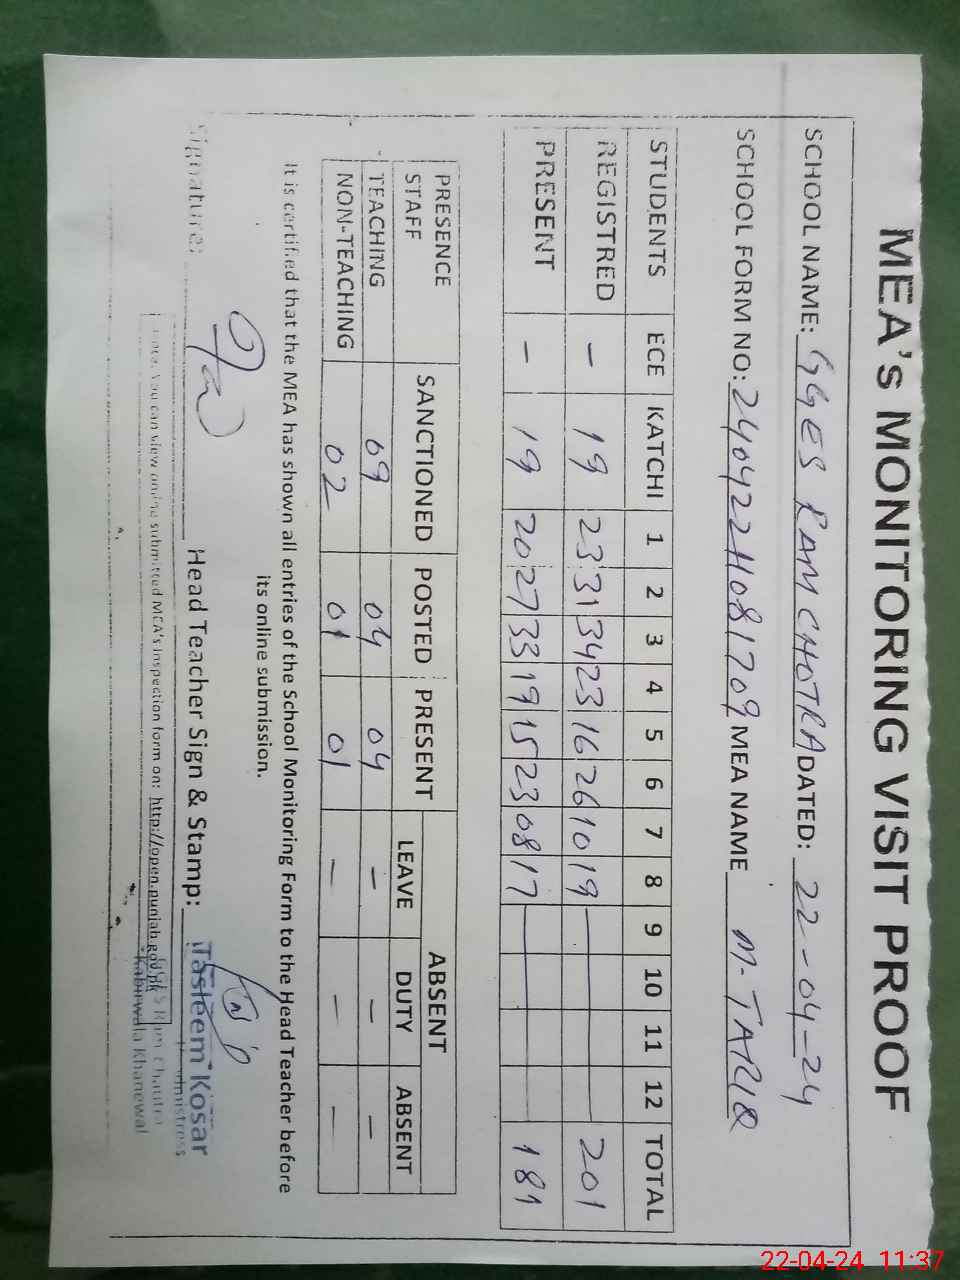 MEA's MONITORING VISIT PROOF
SCHOOL NAME: GGES RAM CHOTRA DATED: 22-04-24
SCHOOL FORM NO: 240422H081709 MEA NAME M. TARIQ
STUDENTS ECE KATCHI 1 2 3 4 5 6 7 8 9 10 11 12 TOTAL
REGISTRED - 19 23 31 34 23 16 26 10 19 201
PRESENT - 19 20 27 33 19 15 23 08 17 181
PRESENCE STAFF SANCTIONED POSTED PRESENT ABSENT
LEAVE DUTY ABSENT
TEACHING 09 04 04 - - -
NON-TEACHING 02 01 01 - - -
It is certified that the MEA has shown all entries of the School Monitoring Form to the Head Teacher before
its online submission.
Signature: Head Teacher Sign & Stamp:
Tasleem Kosar
GGES Ram Chautra
Kabirwala Khanewal
Note: You can view online submitted MEA's inspection form on: http://open.punjab.gov.pk
22-04-24 11:37